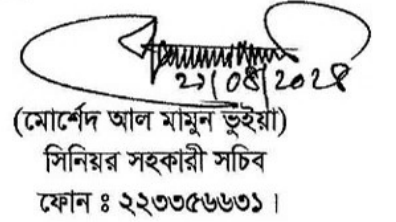 ২১/০৪/২০২৪
(মোর্শেদ আল মামুন ভুইয়া)
সিনিয়র সহকারী সচিব
ফোন ঃ ২২৩৩৫৬৬৩১ ।